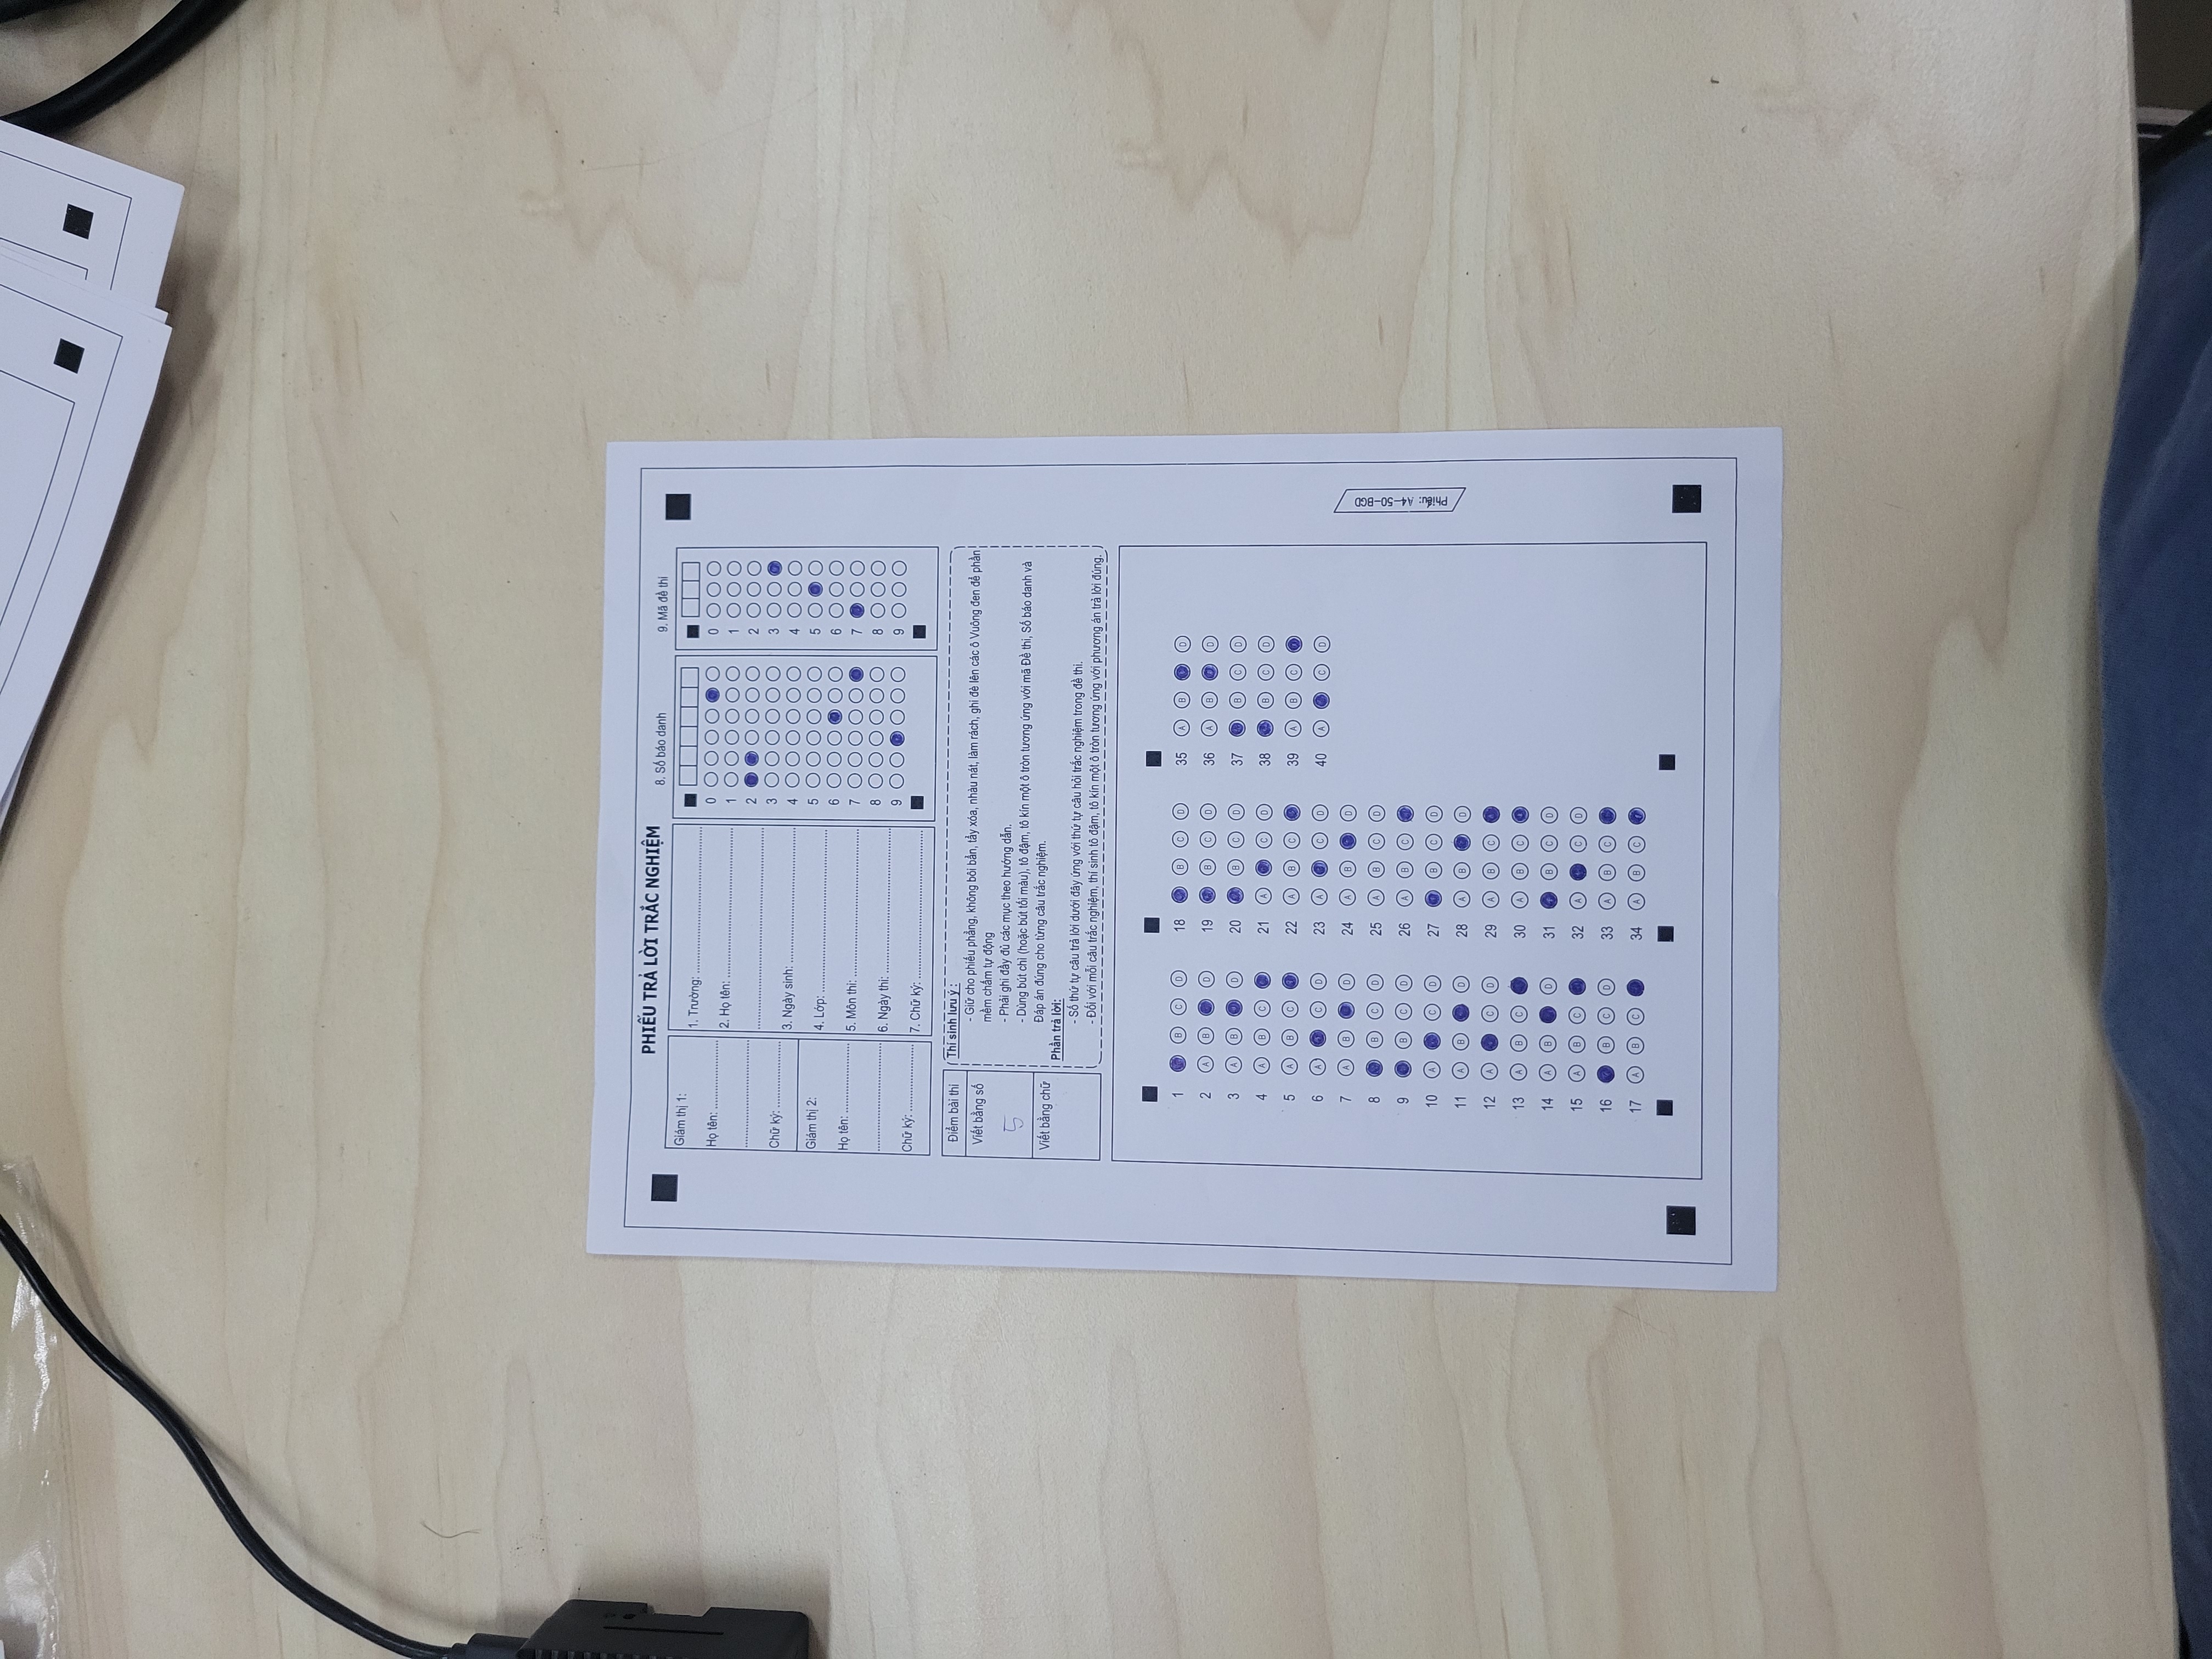 PHIẾU TRẢ LỜI TRẮC NGHIỆM
Giám thị 1:
Họ tên: ......................
Chữ ký: .....................
Giám thị 2:
Họ tên: ......................
Chữ ký: .....................
1. Trường: ..............................................
2. Họ tên: ..............................................
3. Ngày sinh: .........................................
4. Lớp: ..................................................
5. Môn thi: .............................................
6. Ngày thi: ............................................
7. Chữ ký: ..............................................
8. Số báo danh
0
1
2
3
4
5
6
7
8
9
9. Mã đề thi
0
1
2
3
4
5
6
7
8
9
Điểm bài thi
Viết bằng số
5
Viết bằng chữ
Thí sinh lưu ý :
- Giữ cho phiếu phẳng, không bôi bẩn, tẩy xóa, nhàu nát, làm rách, ghi đè lên các ô Vuông đen để phần
mềm chấm tự động
- Phải ghi đầy đủ các mục theo hướng dẫn.
- Dùng bút chì (hoặc bút tối màu), tô đậm, tô kín một ô tròn tương ứng với mã Đề thi, Số báo danh và
Đáp án đúng cho từng câu trắc nghiệm.
Phần trả lời:
- Số thứ tự câu trả lời dưới đây ứng với thứ tự câu hỏi trắc nghiệm trong đề thi.
- Đối với mỗi câu trắc nghiệm, thí sinh tô đậm, tô kín một ô tròn tương ứng với phương án trả lời đúng.
1 B C D
2 A B D
3 A B D
4 A B C
5 A B C
6 A C D
7 A B D
8 B C D
9 B C D
10 A C D
11 A B D
12 A C D
13 A B C
14 A B D
15 A B C
16 B C D
17 A B C
18 B C D
19 B C D
20 B C D
21 A C D
22 A B C
23 A C D
24 A B D
25 A B C D
26 A B C
27 B C D
28 A B D
29 A B C
30 A B C
31 B C D
32 A C D
33 A B C
34 A B C
35 A B D
36 A B D
37 B C D
38 B C D
39 A B C
40 A C D
Phiếu: A4-50-BGD